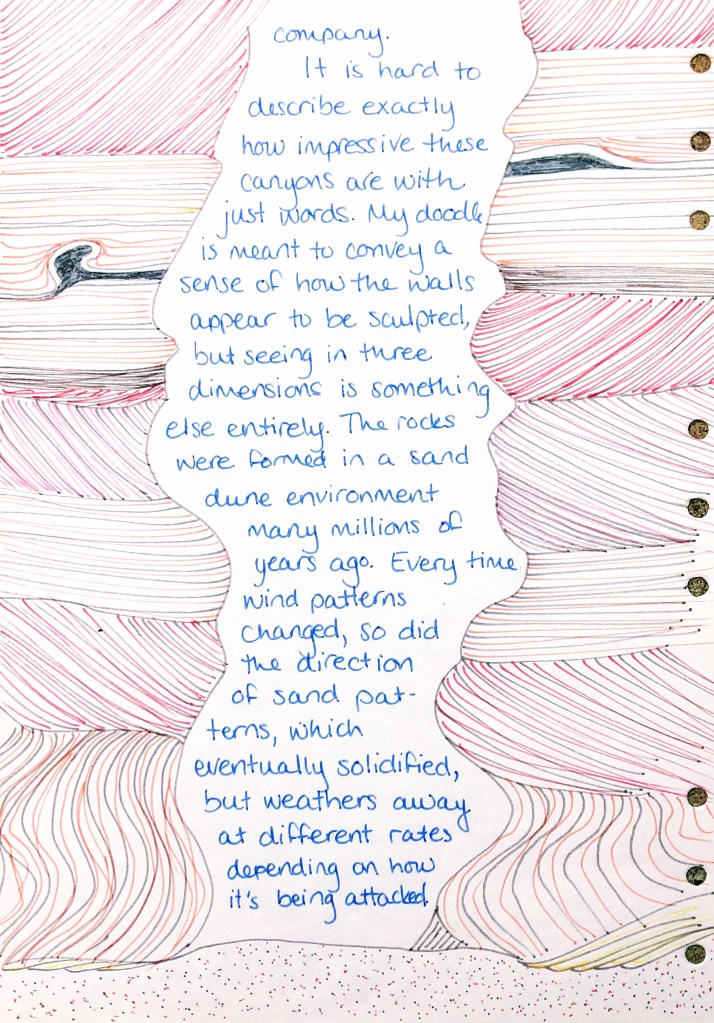 company.
It is hard to
describe exactly
how impressive these
canyons are with
just words. My doodle
is meant to convey a
sense of how the walls
appear to be sculpted,
but seeing in three
dimensions is something
else entirely. The rocks
were formed in a sand
dune environment
many millions of
years ago. Every time
wind patterns
changed, so did
the direction
of sand pat-
terns, which
eventually solidified,
but weathers away
at different rates
depending on how
it's being attacked.